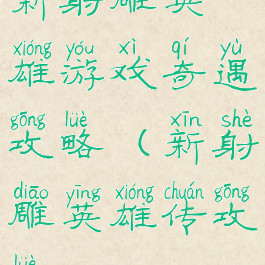 新射雕英
xióng yóu xì qí yù
雄游戏奇遇
gōng lüè xīn shè
攻略（新射
diāo yīng xióng chuán gōng
雕英雄传攻
lüè